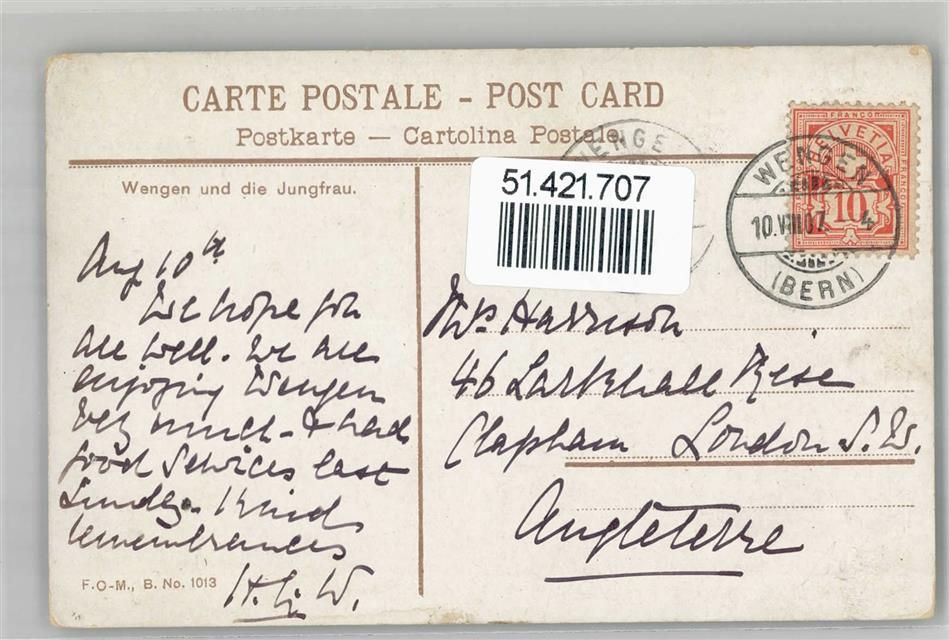 CARTE POSTALE - POST CARD
Postkarte — Cartolina Postale
Wengen und die Jungfrau.
51.421.707
FRANCO
HELVETIA
10
WENGEN
10.VIII.07. 4
(BERN)
WENGE
Aug 10th
We hope you
are well. We are
enjoying Wengen
very much - & had
good Services last
Sunday. Kind
remembrances
H.G.W.
F.O-M., B. No. 1013
Mrs Harrison
46 Larkhall Rise
Clapham London S.W.
Angleterre